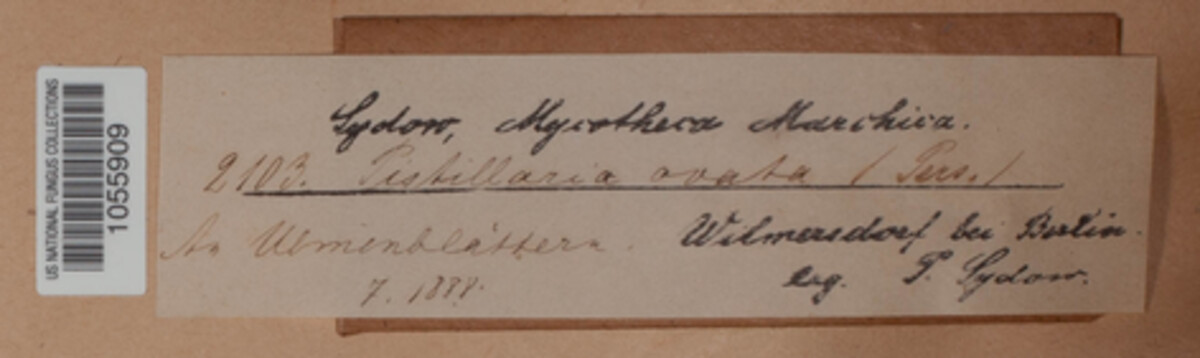 US NATIONAL FUNGUS COLLECTIONS
10555909
Sydow, Mycotheca Marchica.
2103. Pistillaria ovata (Pers.)
An Ulmenblättern. Wilmersdorf bei Berlin.
7. 1888. leg. P. Sydow.